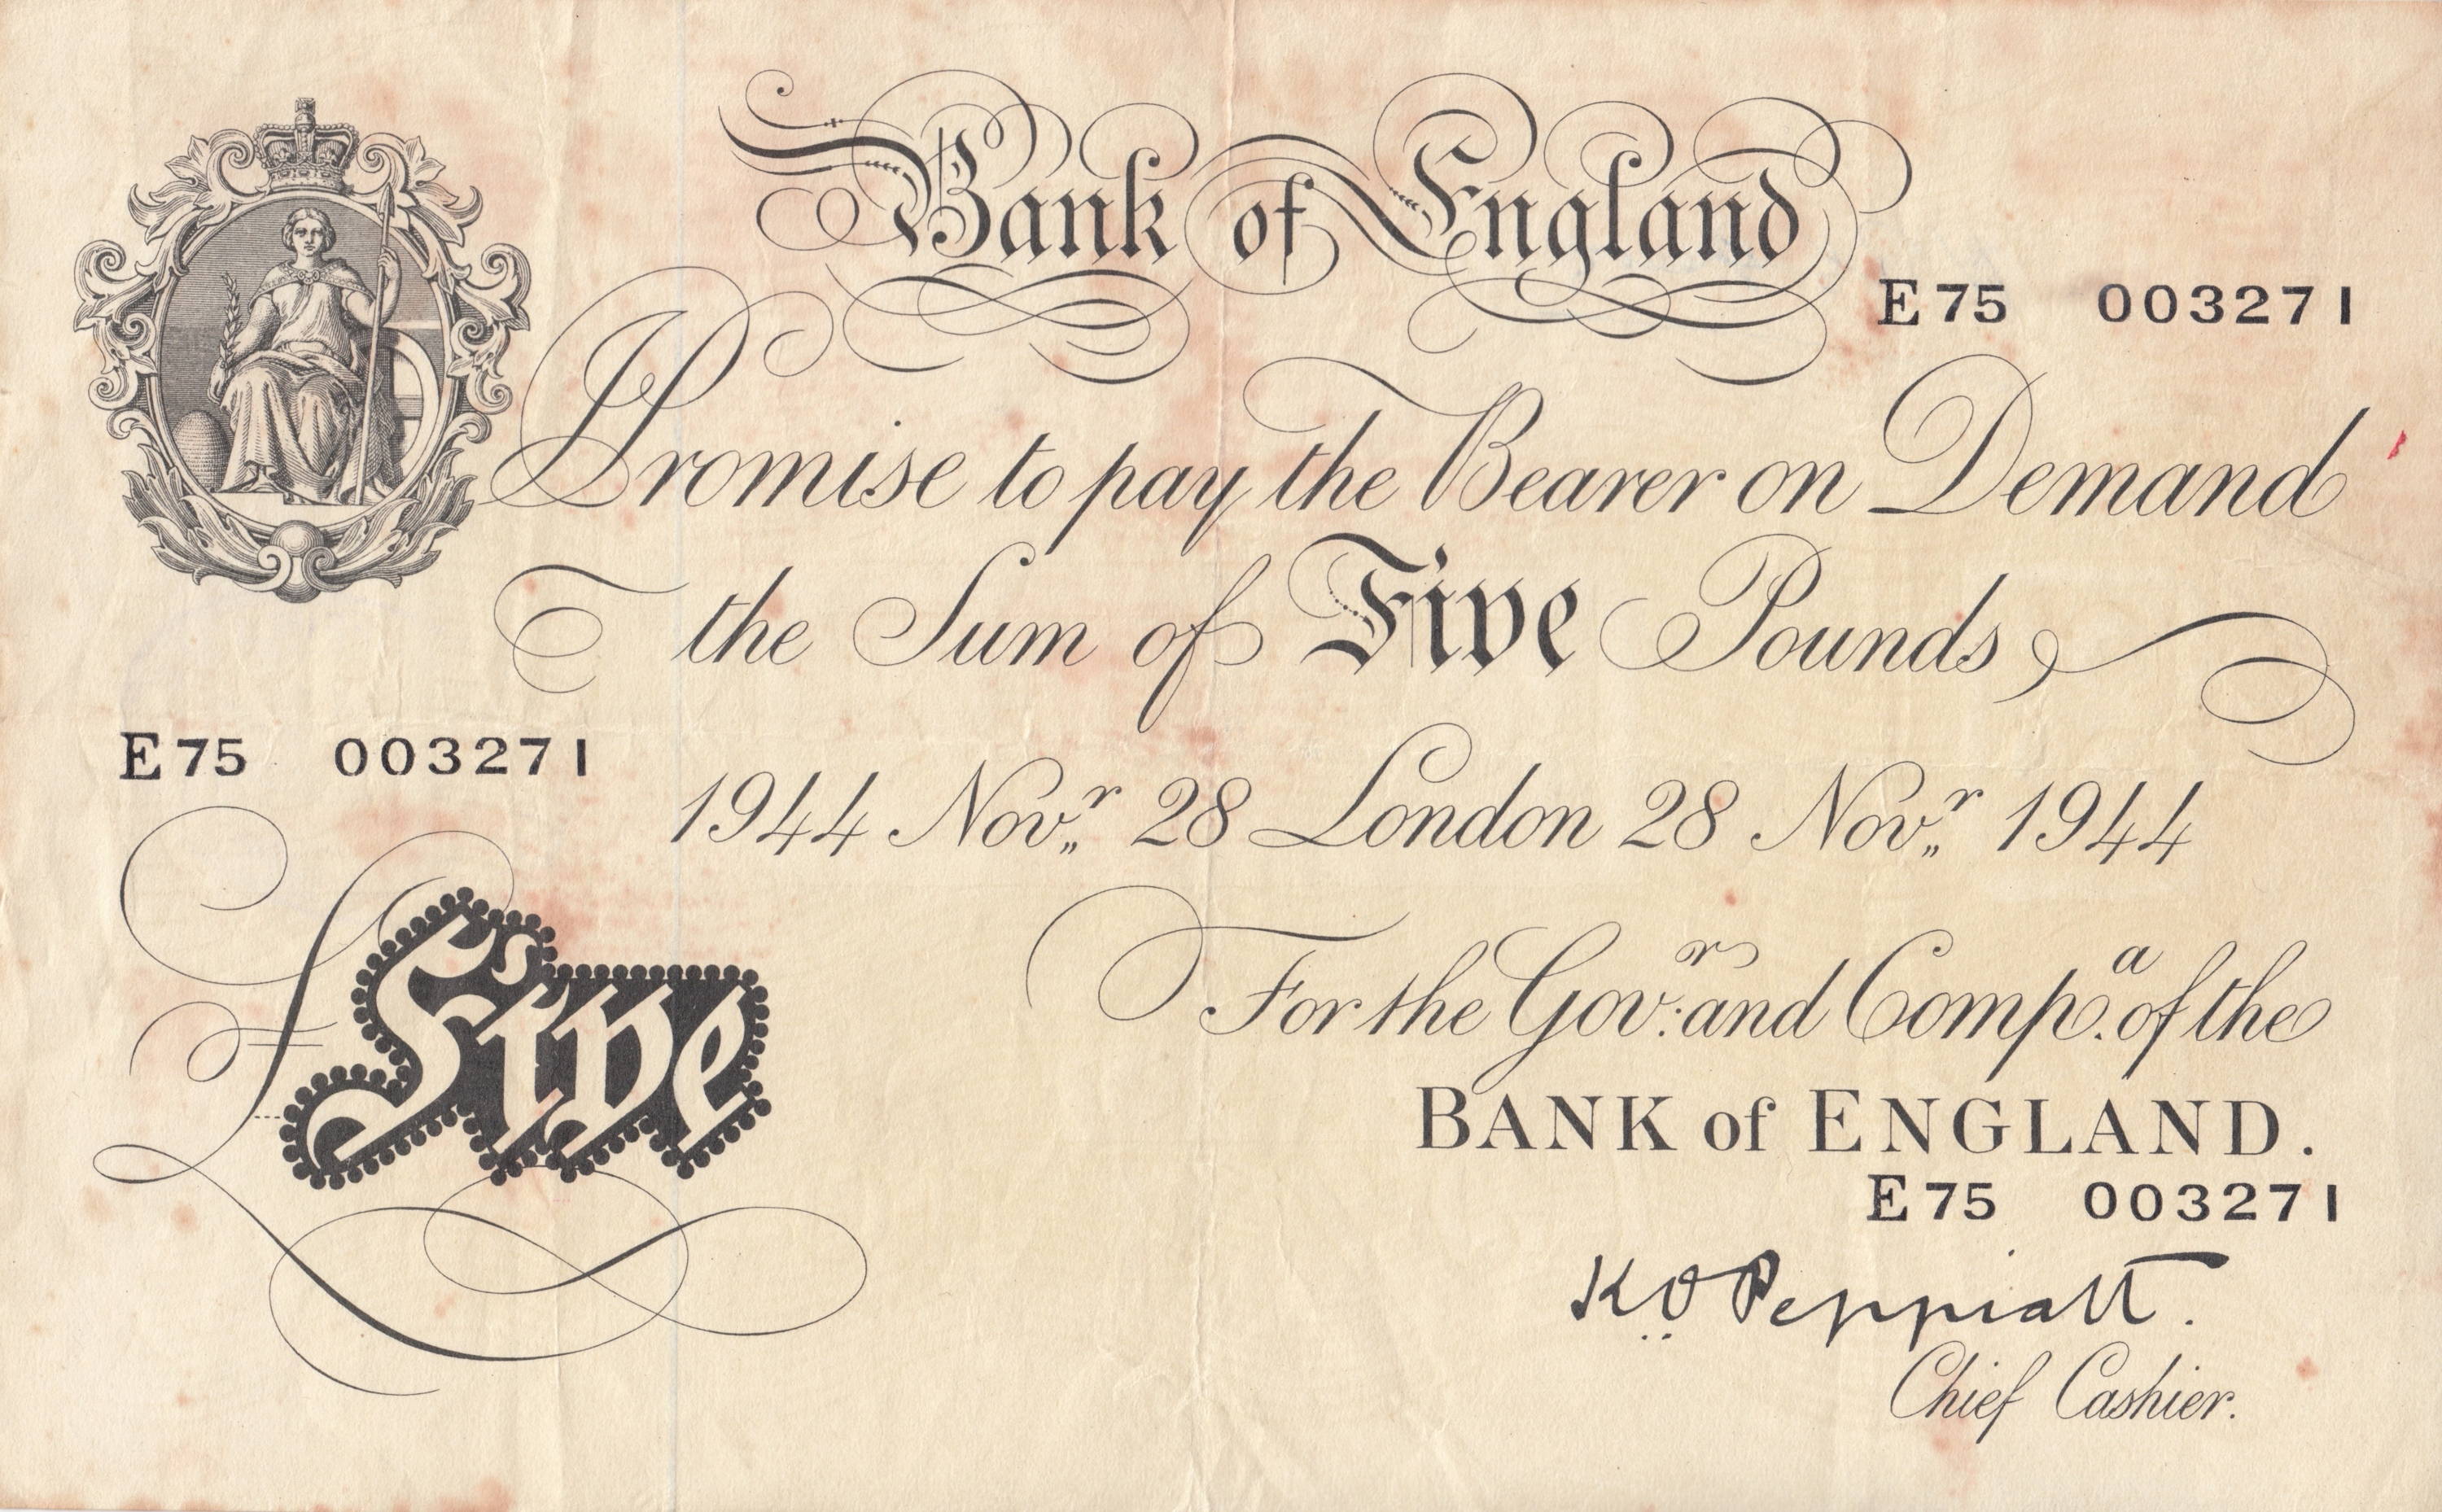 Bank of England
E75 003271
I Promise to pay the Bearer on Demand
the Sum of Five Pounds
E75 003271
1944 Novr 28 London 28 Novr 1944
For the Govr: and Compa. of the
£ Five
BANK of ENGLAND.
E75 003271
K.O. Peppiatt.
Chief Cashier.